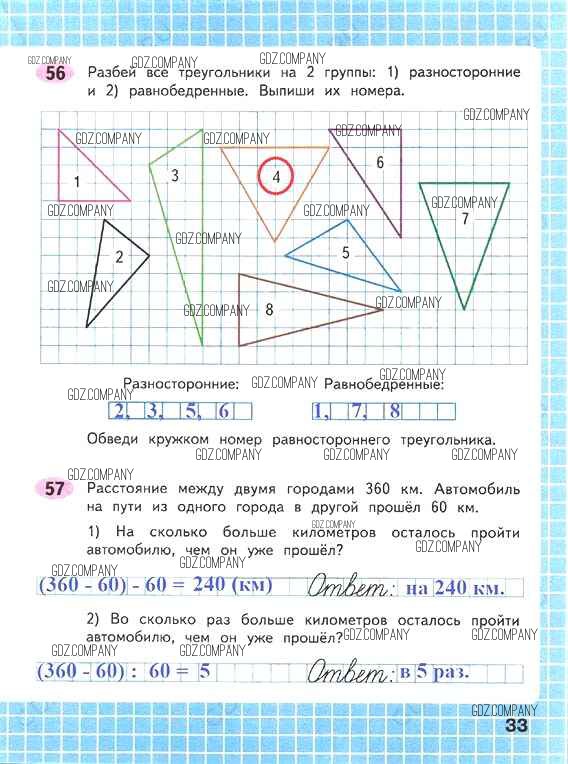 GDZ.COMPANY GDZ.COMPANY GDZ.COMPANY
56 Разбей все треугольники на 2 группы: 1) разносторонние
и 2) равнобедренные. Выпиши их номера.
GDZ.COMPANY
GDZ.COMPANY GDZ.COMPANY GDZ.COMPANY
1 3 4 6
GDZ.COMPANY GDZ.COMPANY GDZ.COMPANY
7
GDZ.COMPANY
2 5
GDZ.COMPANY
GDZ.COMPANY GDZ.COMPANY
8
Разносторонние: GDZ.COMPANY Равнобедренные:
GDZ.COMPANY GDZ.COMPANY
2, 3, 5, 6 1, 7, 8
Обведи кружком номер равностороннего треугольника.
GDZ.COMPANY GDZ.COMPANY GDZ.COMPANY GDZ.COMPANY
GDZ.COMPANY
57 Расстояние между двумя городами 360 км. Автомобиль
на пути из одного города в другой прошёл 60 км.
GDZ.COMPANY
1) На сколько больше километров осталось пройти
автомобилю, чем он уже прошёл?
GDZ.COMPANY
GDZ.COMPANY
(360 - 60) - 60 = 240 (км) Ответ: на 240 км.
2) Во сколько раз больше километров осталось пройти
автомобилю, чем он уже прошёл?
GDZ.COMPANY GDZ.COMPANY
GDZ.COMPANY
(360 - 60) : 60 = 5 Ответ: в 5 раз.
GDZ.COMPANY
33